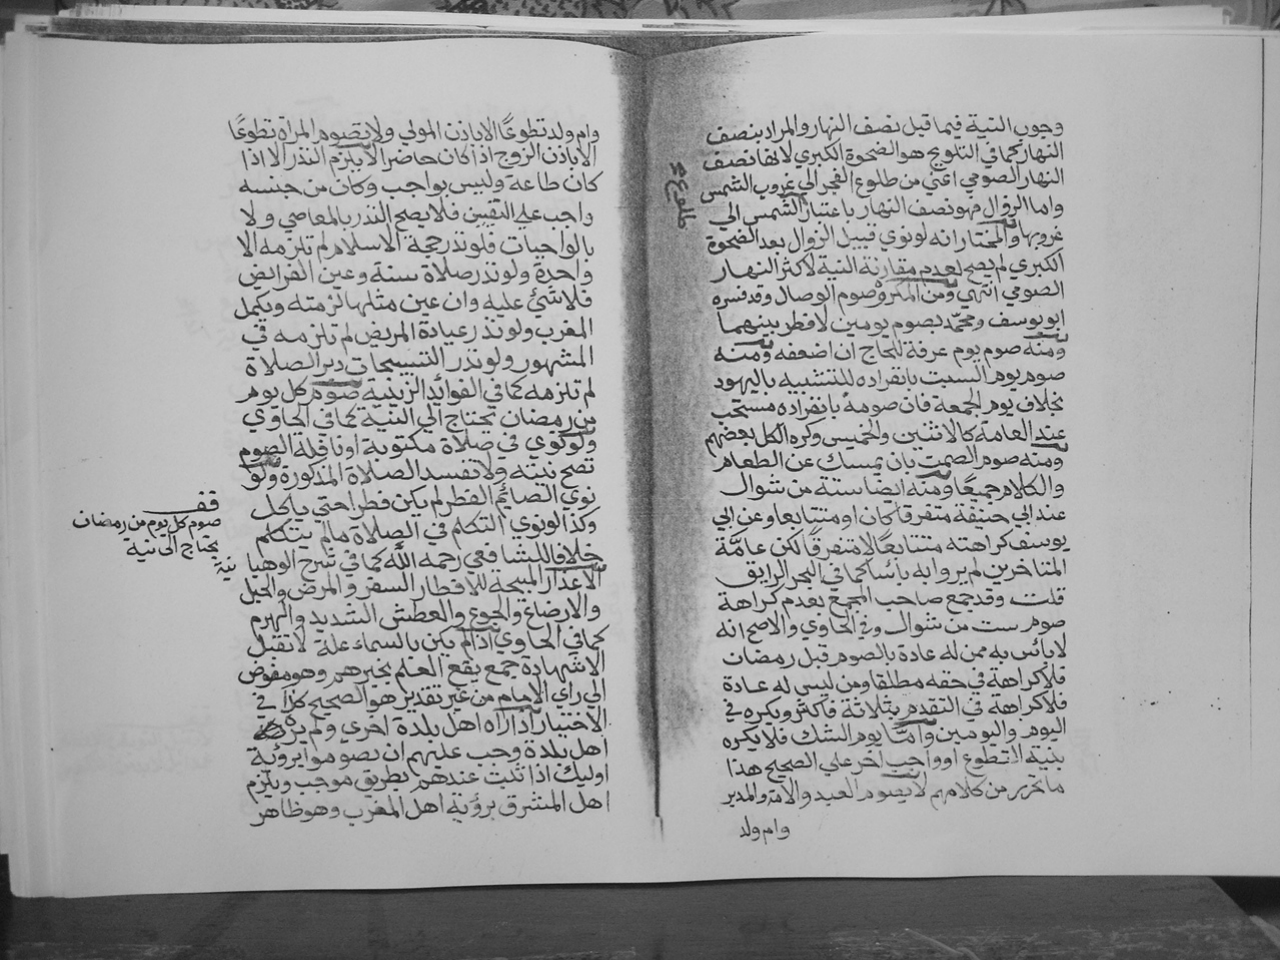 وجوب النية فيما قبل نصف النهار والمراد بنصف
النهار كما في التلويح هو الضحوة الكبري لانها نصف
النهار الصومي اعني من طلوع الفجر الي غروب الشمس
واما الزوال فهو نصف النهار باعتبار الشمس الي
طلوع
غروبها والمختار انه لو نوي قبيل الزوال بعد الضحوة
الكبري لم يصح لعدم مقارنة النية لاكثر النهار
الصومي انتهي ومن المكروه صوم الوصال وقد فسره
ابو يوسف ومحمد بصوم يومين لا فطر بينهما
ومنه صوم يوم عرفة للحاج ان اضعفه ومنه
صوم يوم السبت بانفراده للتشبيه باليهود
بخلاف يوم الجمعة فان صومه بانفراده مستحب
عند العامة كالاثنين والخميس وكره الكل بعضهم
ومنه صوم الصمت بان يمسك عن الطعام
والكلام جميعا ومنه ايضا ستة من شوال
عند ابي حنيفة متفرقا كان او متتابعا وعن ابي
يوسف كراهته متتابعا لا متفرقا لكن عامة
المتاخرين لم يروا به بأسا كما في البحر الرايق
قلت وقد جمع صاحب المجمع بعدم كراهة
صوم ست من شوال وفي الحاوي والاصح انه
لا باس به ممن له عادة بالصوم قبل رمضان
فلا كراهة في حقه مطلقا ومن ليس له عادة
فلا كراهة في التقدم بثلاثة فاكثر ويكره في
اليوم واليومين واما يوم الشك فلا يكره
بنية التطوع او واجب اخر علي الصحيح هذا
ما تحرر من كلامهم لا يصوم العبد والامة والمدبر
وام ولد
وام ولد تطوعا الا باذن المولي ولا تصوم المراة تطوعا
الا باذن الزوج اذا كان حاضرا لا يلزم النذر الا اذا
كان طاعة وليس بواجب وكان من جنسه
واجب علي التعيين فلا يصح النذر بالمعاصي ولا
بالواجبات فلو نذر حجة الاسلام لم تلزمه الا
واحدة ولو نذر صلاة سنة وعين الفرايض
فلا شئ عليه وان عين مثلها لزمته ويكمل
المغرب ولو نذر عيادة المريض لم تلزمه في
المشهور ولو نذر التسبيحات دبر الصلاة
لم تلزمه كما في الفوائد الزينية صوم كل يوم
من رمضان يحتاج الي النية كما في الحاوي
ولو نوي في صلاة مكتوبة او نافلة الصوم
تصح نيته ولا تفسد الصلاة المذكورة ولو
نوي الصايم الفطر لم يكن فطرا حتي ياكل
وكذا لو نوي التكلم في الصلاة مالم يتكلم
خلافا للشافعي رحمه الله كما في شرح الوهبا
نية
الاعذار المبيحة للافطار السفر والمرض والحبل
والارضاع والجوع والعطش الشديد والهرم
كما في الحاوي اذا لم يكن بالسماء علة لا تقبل
الا شهادة جمع يقع العلم بخبرهم وهو مفوض
الي راي الامام من غير تقدير هو الصحيح كذا في
الاختيار اذا راه اهل بلدة اخري ولم يره
اهل بلدة وجب عليهم ان يصوموا برؤية
اوليك اذا ثبت عندهم بطريق موجب ويلزم
اهل المشرق برؤية اهل المغرب وهو ظاهر
قف
صوم كل يوم من رمضان
يحتاج الي نية